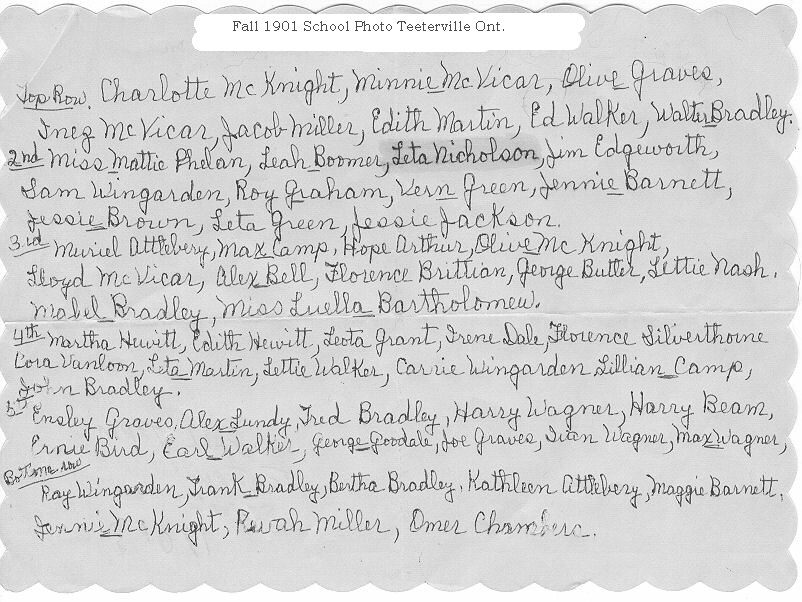 Fall 1901 School Photo Teeterville Ont.
Top Row. Charlotte McKnight, Minnie McVicar, Olive Graves,
Inez McVicar, Jacob Miller, Edith Martin, Ed Walker, Walter Bradley.
2nd Miss Mattie Phelan, Leah Boomer, Leta Nicholson, Jim Edgeworth,
Sam Wingarden, Roy Graham, Vern Green, Jennie Barnett,
Jessie Brown, Leta Green, Jessie Jackson.
3rd Muriel Attlebery, Max Camp, Hope Arthur, Olive McKnight,
Lloyd McVicar, Alex Bell, Florence Brittian, George Butler, Lettie Nash.
Mabel Bradley, Miss Luella Bartholomew.
4th Martha Hewitt, Edith Hewitt, Leota Grant, Irene Dale, Florence Silverthorne
Cora Vanloon, Leta Martin, Lettie Walker, Carrie Wingarden Lillian Camp,
John Bradley.
5th Ensley Graves, Alex Lundy, Fred Bradley, Harry Wagner, Harry Beam,
Ernie Bird, Earl Walker, George Goodale, Joe Graves, Ivan Wagner, Max Wagner,
Bottom row
Ray Wingarden, Frank Bradley, Bertha Bradley. Kathleen Attlebery, Maggie Barnett.
Jennie McKnight, Rewah Miller, Omer Chambers.